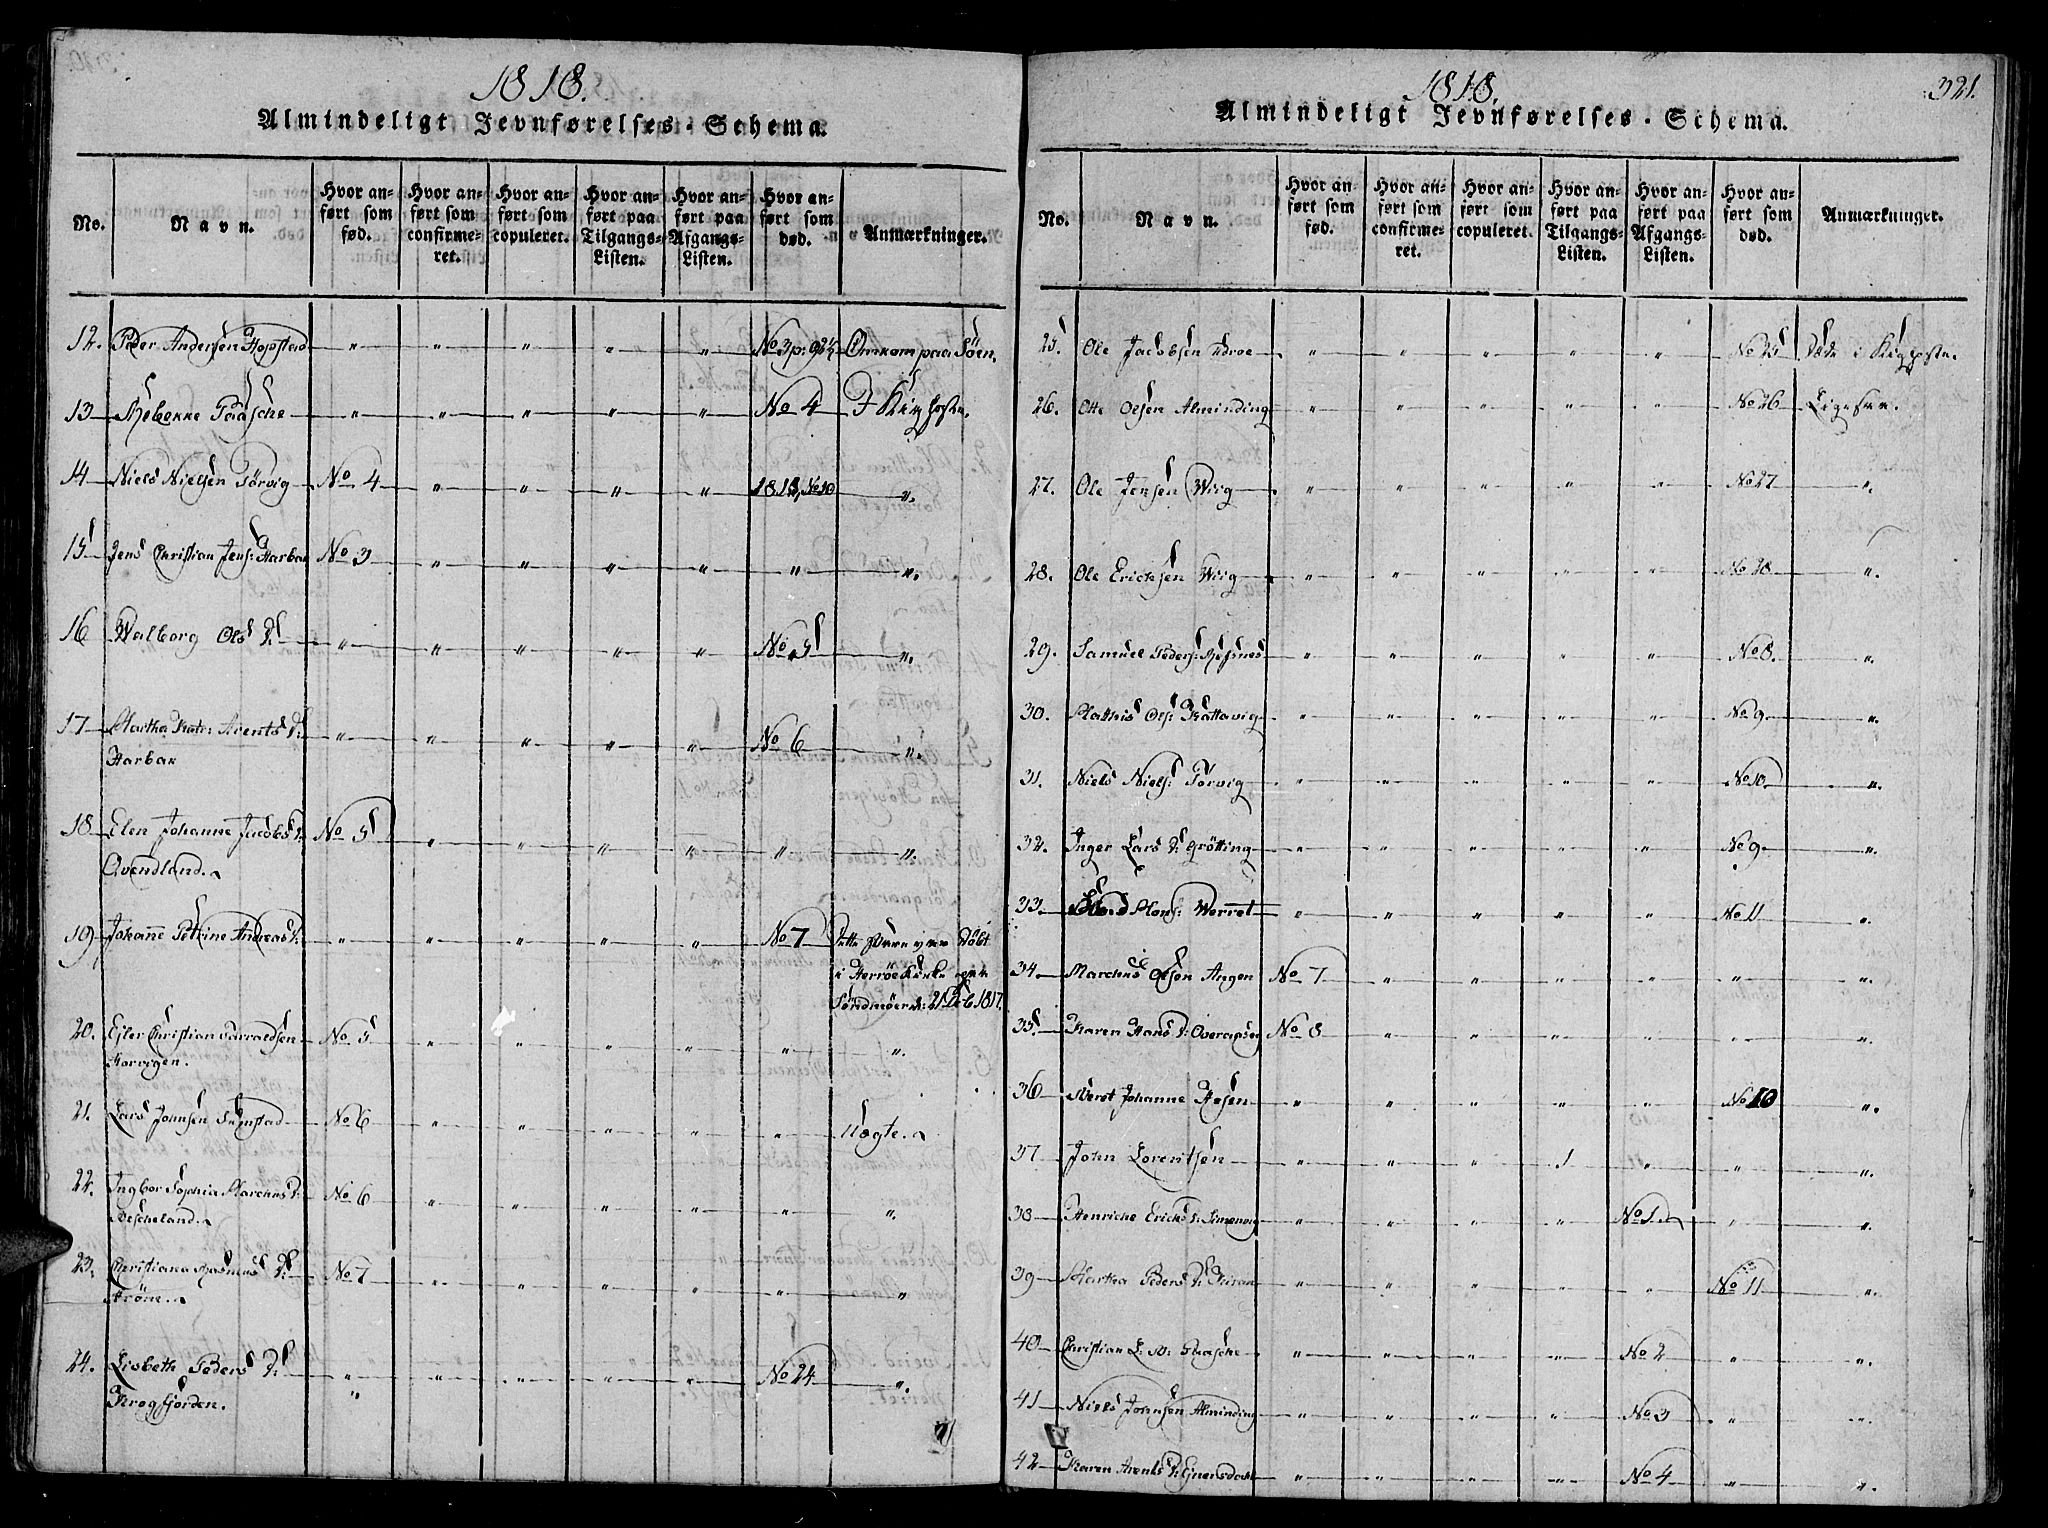 1818.
Almindeligt Jevnførelses-Schema.
No.
Navn.
Hvor anført som fød.
Hvor anført som confirmeret.
Hvor anført som copuleret.
Hvor anført paa Tilgangs-Listen.
Hvor anført paa Afgangs-Listen.
Hvor anført som død.
Anmærkninger.
12. Peder Andersen Hopstad " " " " " No 3 p: 92½ Omkom paa Søen.
13 Rebekke Paasche " " " " " No 4
14 Niels Nielsen Torvig No 4 " " " " 1818, No 10 ".
15 Jens Christian Jens: Harbak No 3 " " " " " ".
16 Walborg Ols D: " " " " " No 5 ".
17 Martha Katr: Arents D: " " " " " No 6 ".
Harbak
18 Elen Johanne Jacobs D: No 5 " " " " " ".
Qvendland.
19 Johanne Petrine Andreas D: " " " " " No 7 Dette døbt
i Herröe Kirke
Söndmöer d: 21 1817.
20. Ejler Christian No 5 " " " " " ".
Harvigen.
21. Lars Johnsen Sumstad No 6 " " " " " Uægte.
22. Ingbor Sophia Marchus D: No 6 " " " " " ".
Bescheland.
23. Christiana Rasmus D: No 7 " " " " " "
24. Lisbeth Peders D: " " " " " No 24 ".
Krogfjorden. "
321.
1818.
Almindeligt Jevnførelses-Schema.
No.
Navn.
Hvor anført som fød.
Hvor anført som confirmeret.
Hvor anført som copuleret.
Hvor anført paa Tilgangs-Listen.
Hvor anført paa Afgangs-Listen.
Hvor anført som død.
Anmærkninger.
25 Ole Jacobsen " " " " " No 25 Døde i
26. Otte Olsen Alminding " " " " " No 26 Ligesaa.
27. Ole Jensen Wiig " " " " " No 27 ".
28. Ole Ericksen Wiig " " " " " No 28 ".
29. Samuel Peders: " " " " " No 8. ".
30. Mathis Ols: Rattavig " " " " " No 9 ".
31. Niels Niels: Torvig " " " " " No 10. ".
32. Inger Lars D: Grötting " " " " " No 9 ".
33. Mons: Werret " " " " " No 11 ".
34 Marchus Olsen Angen No 7 " " " " " ".
35. Karen Hans D: No 8 " " " " " ".
36 Beret Johanne Hosen " " " " " No 10 ".
37 John Lorentsen " " " 1 " " ".
38 Henriche Ericks D: " " " " No 1. " ".
39 Martha Peders D: Kiran " " " " " No 11 ".
40 Christian L: Paasche " " " " No 2 " ".
41 Niels Johnsen Alminding " " " " No 3 " ".
42 Karen Arents D: Ejnersdahl " " " " No 4 " ".